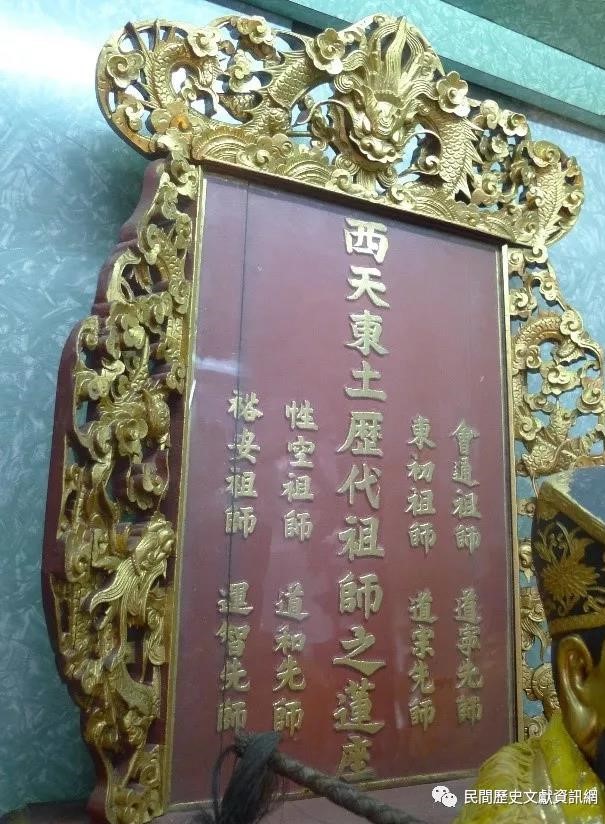 會通祖師 道先師
東初祖師 道宗先師
西天東土歷代祖師之蓮座
性空祖師 道和先師
裕安祖師 運智先師
民間歷史文獻資訊網